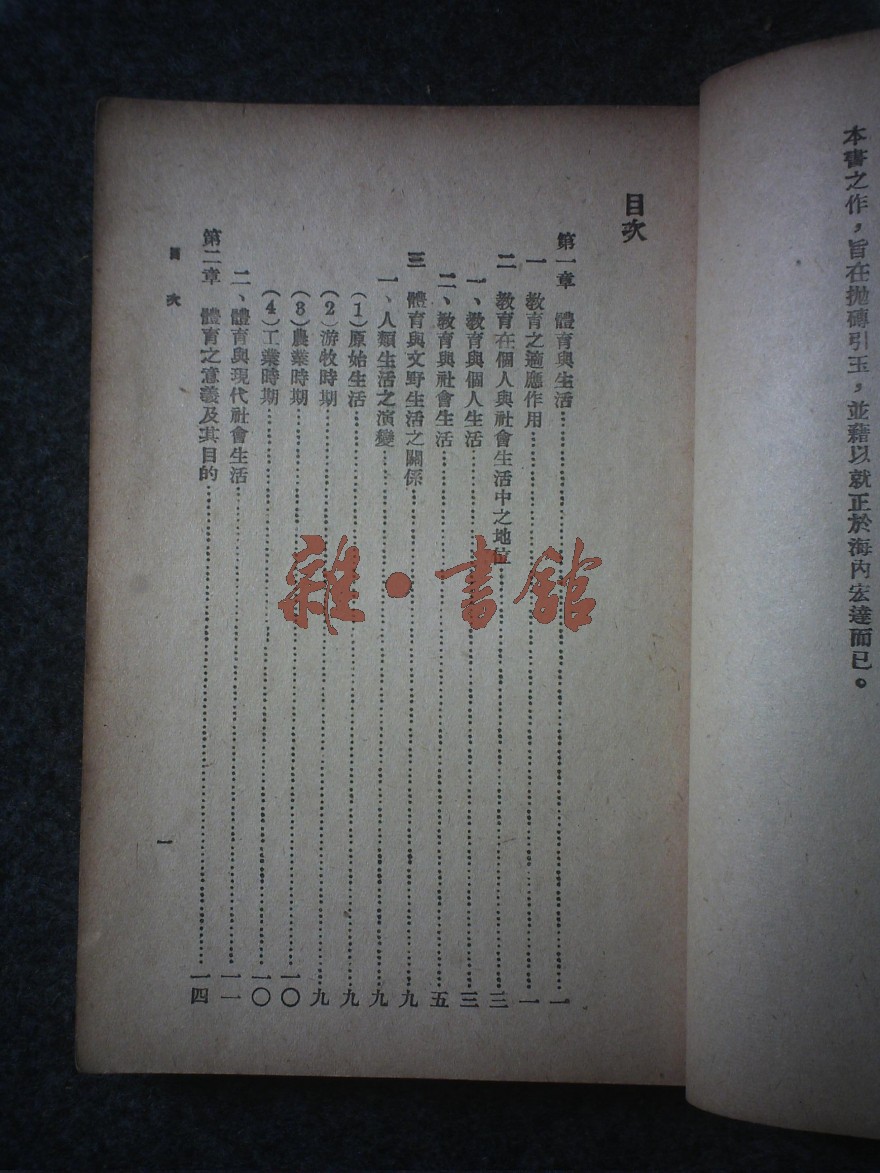 本書之作，旨在拋磚引玉，並藉以就正於海內宏達而已。
目次
第一章　體育與生活……一
一　教育之適應作用……一
二　教育在個人與社會生活中之地位……三
一、教育與個人生活……三
二、教育與社會生活……五
三　體育與文野生活之關係……九
一、人類生活之演變……九
(1)原始生活……九
(2)游牧時期……九
(3)農業時期……一〇
(4)工業時期……一〇
二、體育與現代社會生活……一一
第二章　體育之意義及其目的……一四
目次
一
雜·書館